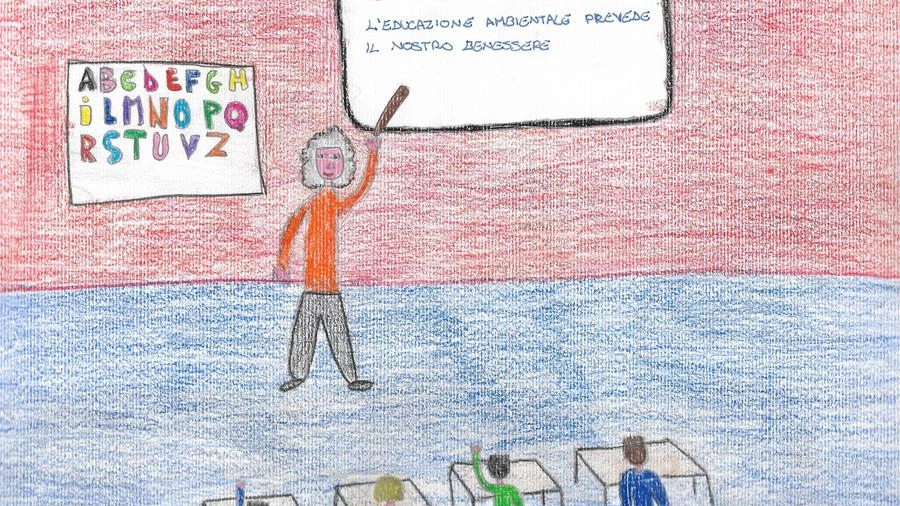 L'EDUCAZIONE AMBIENTALE PREVEDE
IL NOSTRO BENESSERE
ABCDEFGH
iLMNOPQ
RSTUVZ